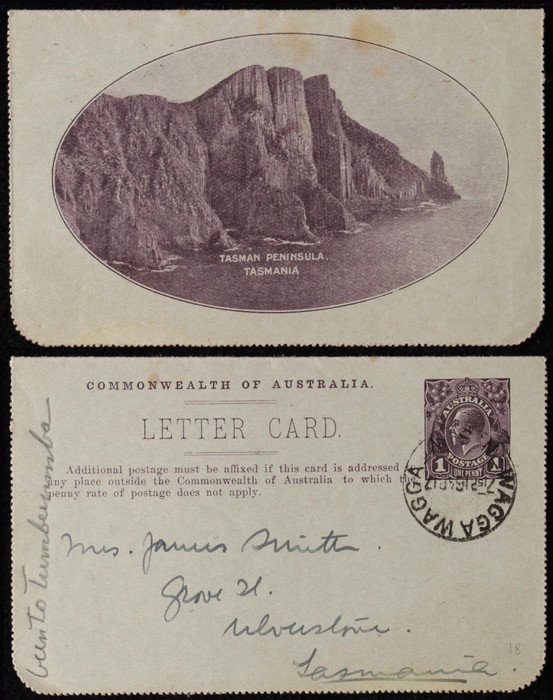 TASMAN PENINSULA.
TASMANIA
COMMONWEALTH OF AUSTRALIA.
LETTER CARD.
Additional postage must be affixed if this card is addressed
any place outside the Commonwealth of Australia to which the
penny rate of postage does not apply.
AUSTRALIA
1
POSTAGE
ONE PENNY
WAGGA WAGGA
Mrs. James Smith.
Grove St.
Ulverstone.
Tasmania.
to Tumbarumba
18